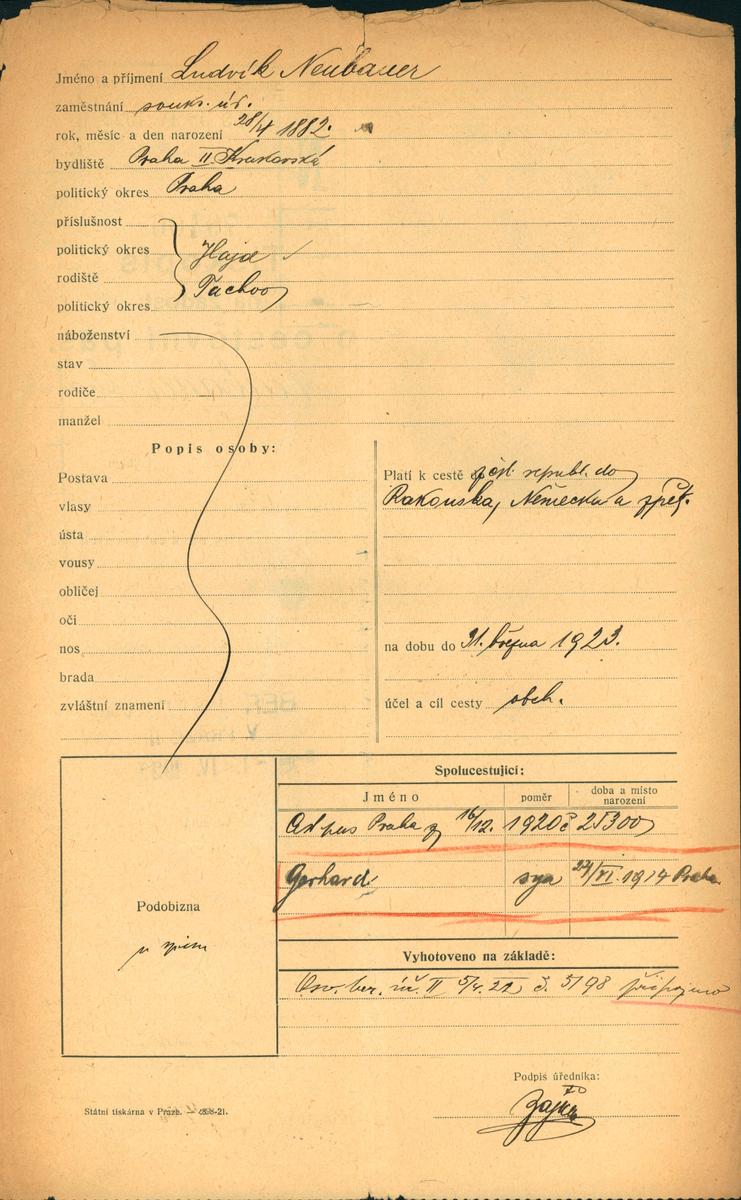 Jméno a příjmení Ludvík Neubauer
zaměstnání soukr. úř.
rok, měsíc a den narození 28/4 1882.
bydliště Praha II Krakovská
politický okres Praha
příslušnost
politický okres
rodiště
Tachov
politický okres
náboženství
stav
rodiče
manžel
Popis osoby:
Postava
vlasy
ústa
vousy
obličej
oči
nos
brada
zvláštní znamení
Platí k cestě čsl. republ. do
Rakouska, Německa a zpět.
na dobu do 31. března 1923.
účel a cíl cesty obch.
Podobizna
Spolucestující:
Jméno poměr doba a místo narození
Praha 16/12. 1920 č 25300
Gerhard syn 24/VI. 1914 Praha
Vyhotoveno na základě:
Osv. ber. úř. II 5/4. 22 č. 5198 připojeno
Podpis úředníka:
Státní tiskárna v Praze.